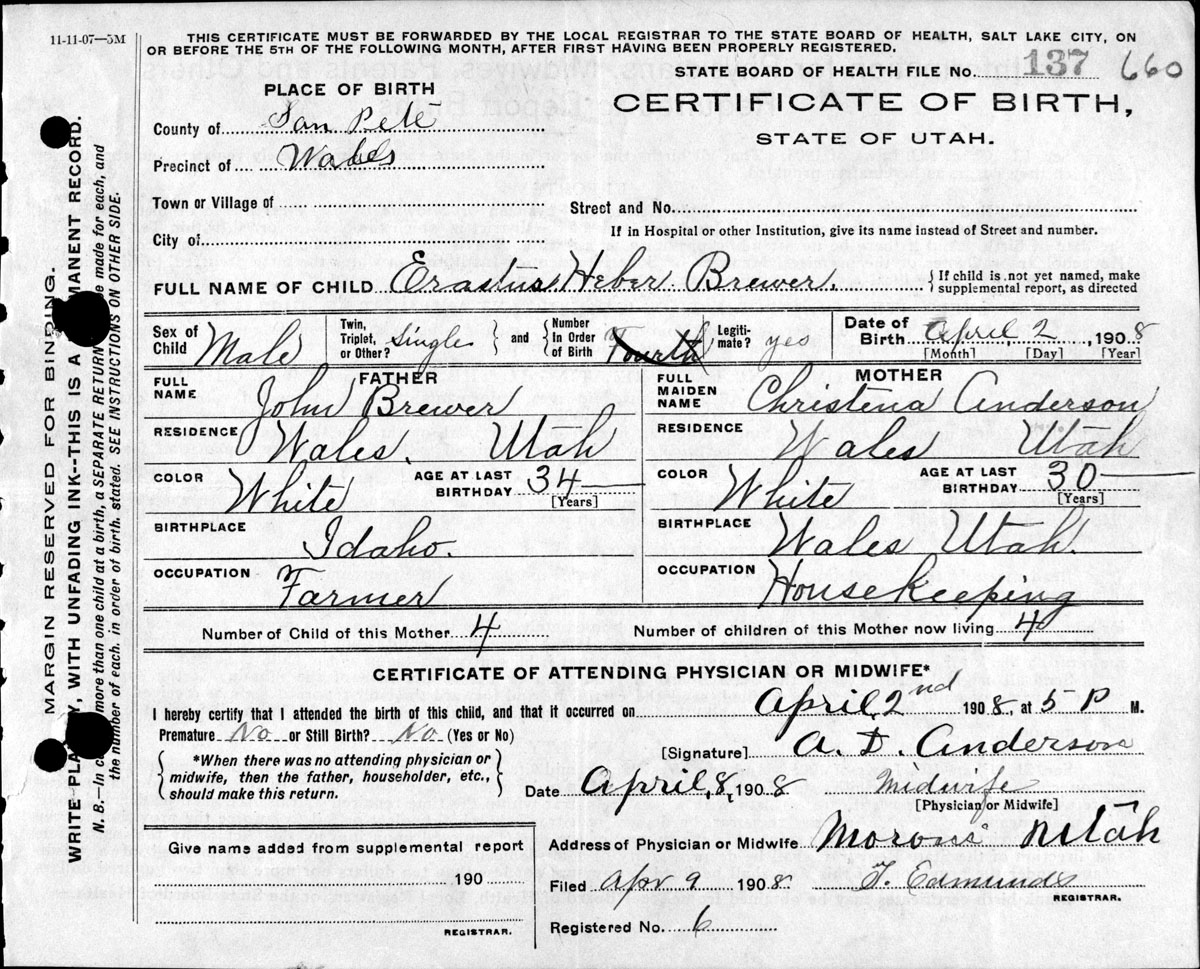 11-11-07—5M
THIS CERTIFICATE MUST BE FORWARDED BY THE LOCAL REGISTRAR TO THE STATE BOARD OF HEALTH, SALT LAKE CITY, ON
OR BEFORE THE 5TH OF THE FOLLOWING MONTH, AFTER FIRST HAVING BEEN PROPERLY REGISTERED.
STATE BOARD OF HEALTH FILE No. 137 660
PLACE OF BIRTH
CERTIFICATE OF BIRTH,
STATE OF UTAH.
County of San Pete
Precinct of Wales
Town or Village of
Street and No.
If in Hospital or other Institution, give its name instead of Street and number.
City of
FULL NAME OF CHILD Erastus Heber Brewer. { If child is not yet named, make
supplemental report, as directed
Sex of Child Male
Twin, Triplet, or Other? Single
and { Number In Order of Birth Fourth
Legiti-mate? yes
Date of Birth April, 2, 1908
[Month] [Day] [Year]
FATHER
FULL NAME John Brewer
RESIDENCE Wales. Utah
COLOR White AGE AT LAST BIRTHDAY 34 [Years]
BIRTHPLACE Idaho.
OCCUPATION Farmer
MOTHER
FULL MAIDEN NAME Christena Anderson
RESIDENCE Wales Utah
COLOR White AGE AT LAST BIRTHDAY 30 [Years]
BIRTHPLACE Wales Utah.
OCCUPATION Housekeeping
Number of Child of this Mother 4 Number of children of this Mother now living 4
CERTIFICATE OF ATTENDING PHYSICIAN OR MIDWIFE*
I hereby certify that I attended the birth of this child, and that it occurred on April 2nd 1908, at 5 P M.
Premature No or Still Birth? No (Yes or No)
[Signature] A. D. Anderson
{ *When there was no attending physician or
midwife, then the father, householder, etc.,
should make this return. }
Date April, 8, 1908 Midwife
[Physician or Midwife]
Give name added from supplemental report
190
REGISTRAR.
Address of Physician or Midwife Moroni Utah
Filed Apr 9 1908 T. Edmunds
REGISTRAR.
Registered No. 6
MARGIN RESERVED FOR BINDING.
WRITE PLA Y, WITH UNFADING INK--THIS IS A MANENT RECORD.
N. B.—In c more than one child at a birth, a SEPARATE RETURN e made for each, and
the number of each, in order of birth, stated. SEE INSTRUCTIONS ON OTHER SIDE.